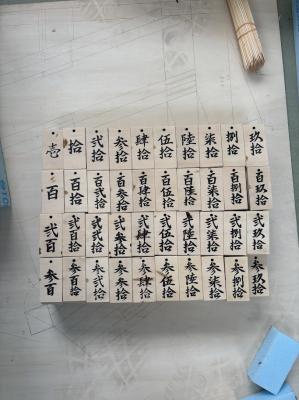 壱 拾 弐拾 参拾 肆拾 伍拾 陸拾 柒拾 捌拾 玖拾
百 百拾 百弐拾 百参拾 百肆拾 百伍拾 百陸拾 百柒拾 百捌拾 百玖拾
弐百 弐百拾 弐弐拾 弐参拾 弐肆拾 弐伍拾 弐陸拾 弐柒拾 弐捌拾 弐玖拾
参百 参百拾 参弐拾 参参拾 参肆拾 参伍拾 参陸拾 参柒拾 参捌拾 参玖拾